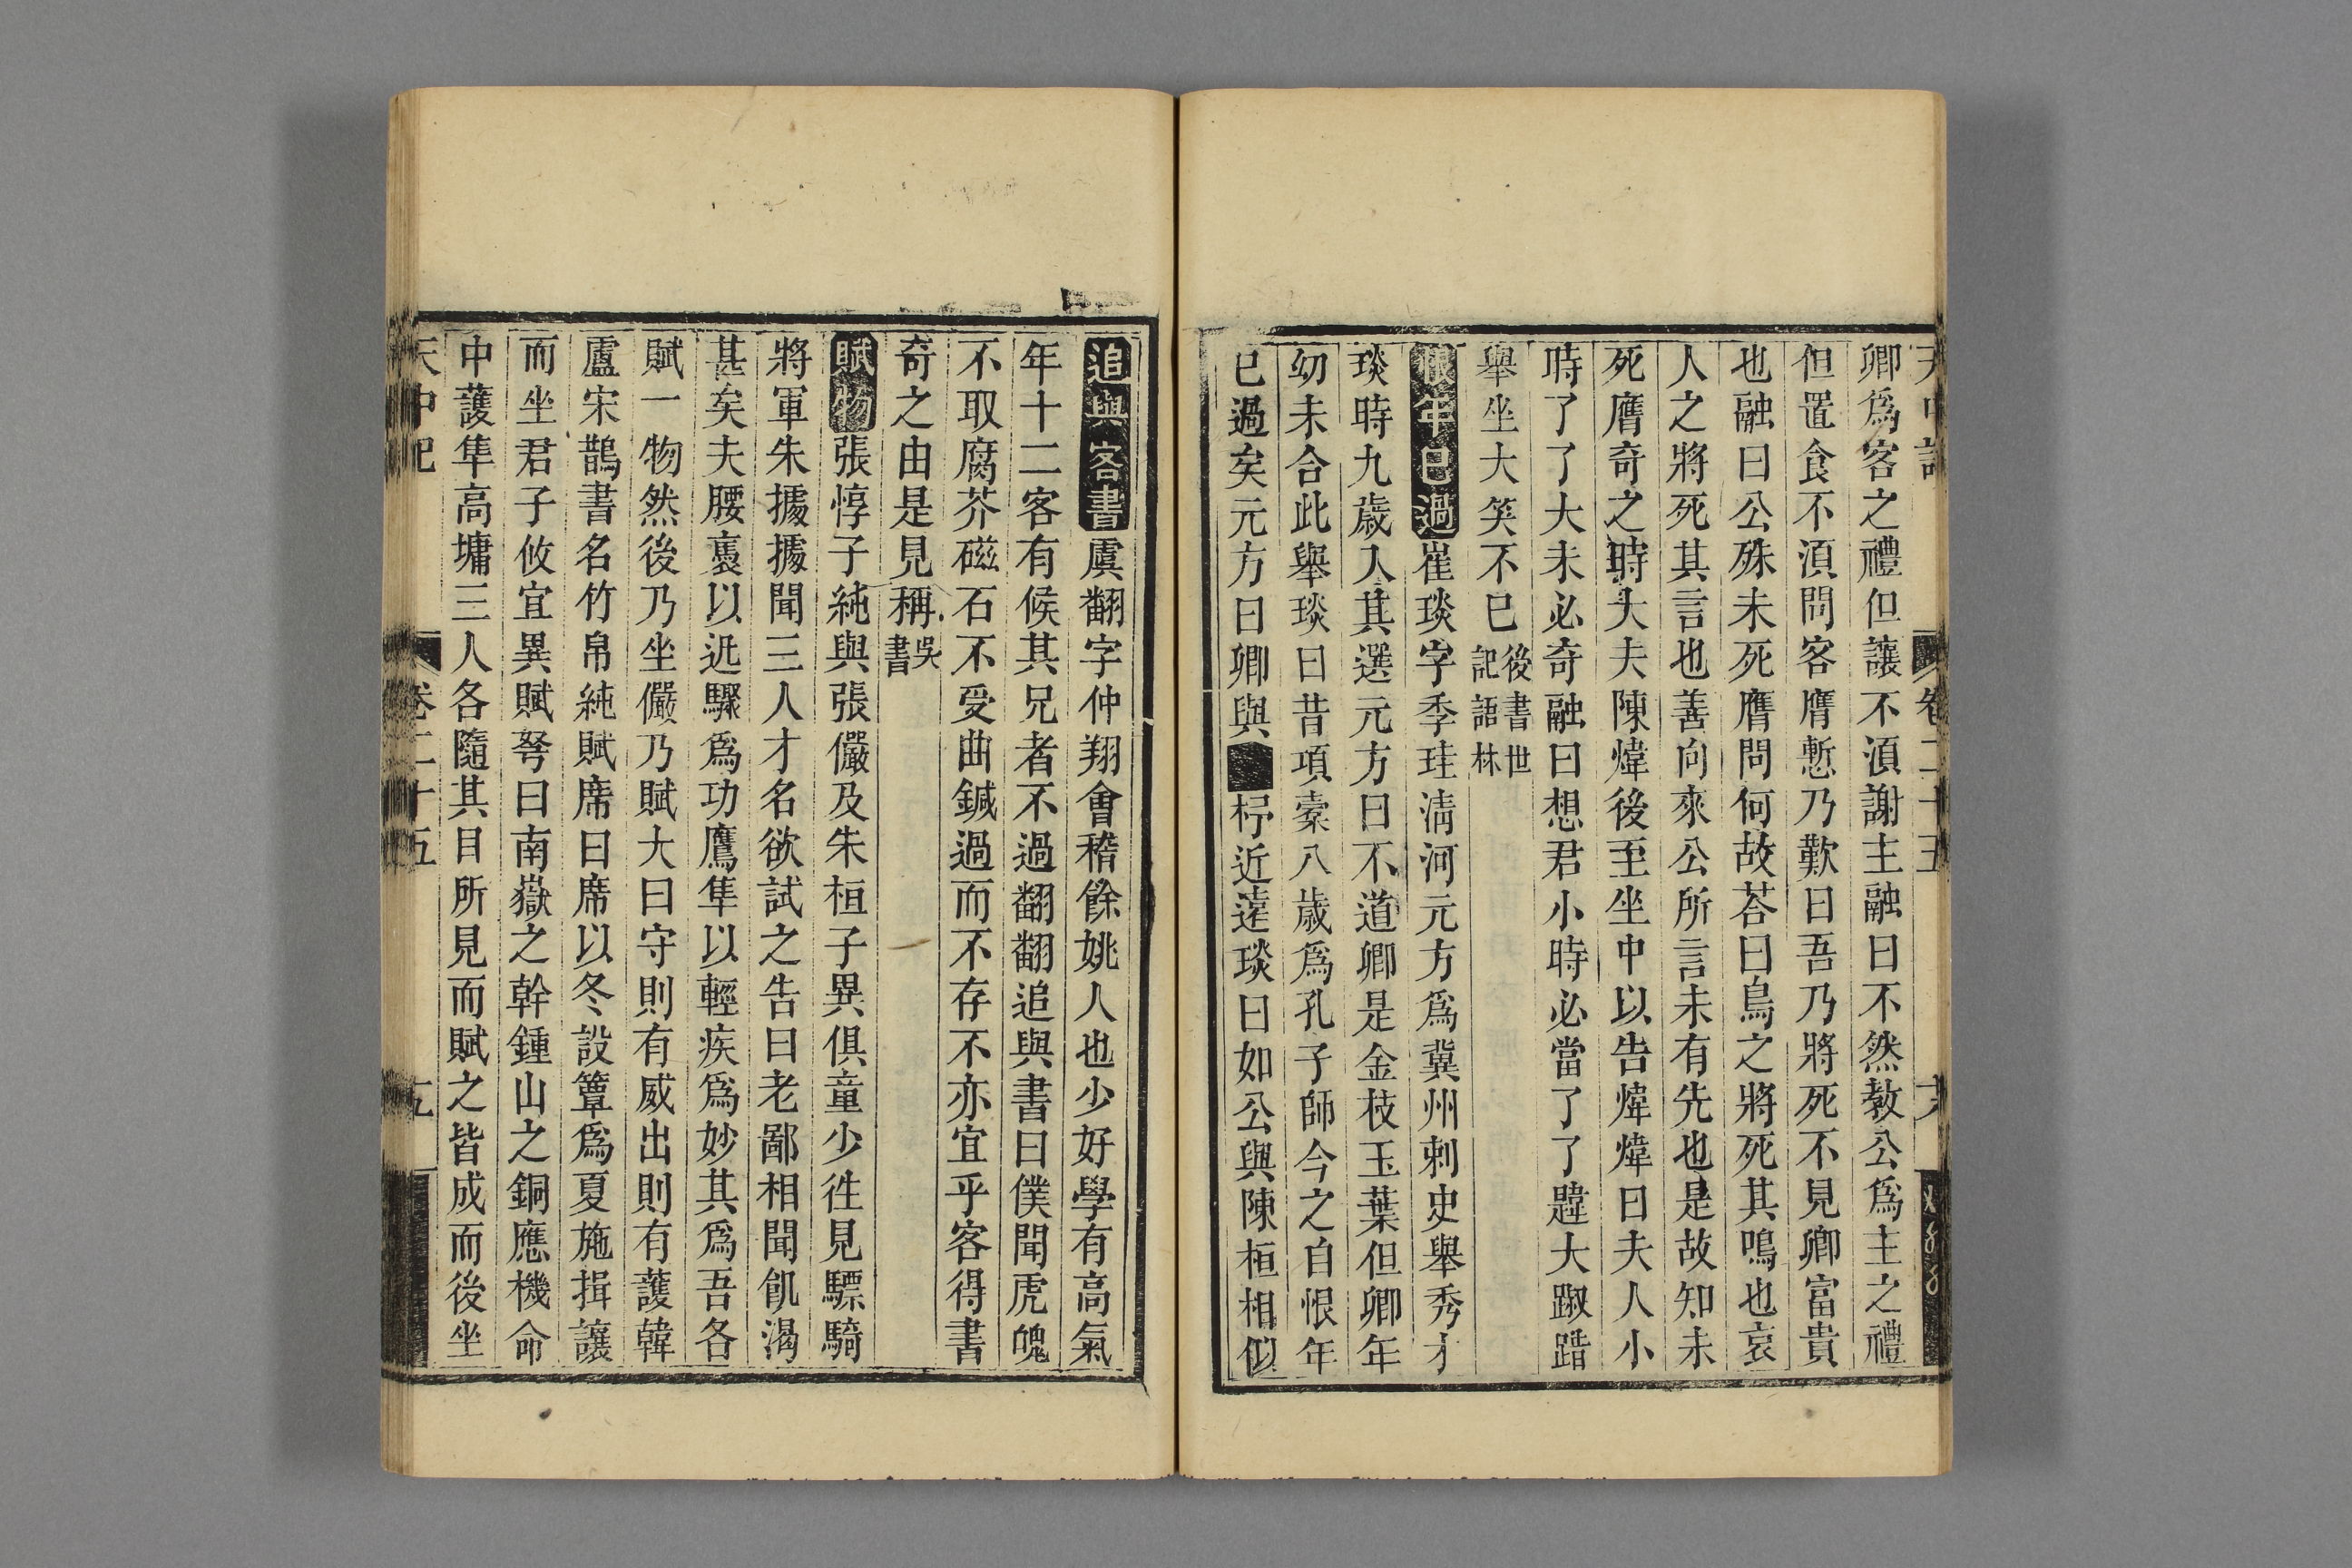 天中記 卷二十五
卿爲客之禮但讓不湏謝主融曰不然教公爲主之禮
但置食不湏問客膺慙乃歎曰吾乃將死不見卿富貴
也融曰公殊未死膺問何故荅曰鳥之將死其鳴也哀
人之將死其言也善向來公所言未有先也是故知未
死膺奇之時大夫陳煒後至坐中以告煒煒曰夫人小
時了了大未必奇融曰想君小時必當了了韙大踧踖
舉坐大笑不已後書世
記語林
恨年已過崔琰字季珪淸河元方爲冀州刺史舉秀才
琰時九歲入其選元方曰不道卿是金枝玉葉但卿年
幼未合此舉琰曰昔項橐八歲爲孔子師今之自恨年
已過矣元方曰卿與 杼近遠琰曰如公與陳桓相似
追與客書虞翻字仲翔會稽餘姚人也少好學有高氣
年十二客有候其兄者不過翻翻追與書曰僕聞虎魄
不取腐芥磁石不受曲鍼過而不存不亦宜乎客得書
奇之由是見稱吳
書
賦物張惇子純與張儼及朱桓子異俱童少徃見驃騎
將軍朱據據聞三人才名欲試之告曰老鄙相聞飢渴
甚矣夫腰褭以迅驟爲功鷹隼以輕疾爲妙其爲吾各
賦一物然後乃坐儼乃賦犬曰守則有威出則有䕶韓
盧宋鵲書名竹帛純賦席曰席以冬設簟爲夏施揖讓
而坐君子攸宜異賦弩曰南嶽之幹鍾山之銅應機命
中䕶隼高墉三人各隨其目所見而賦之皆成而後坐
天中記 卷二十五 五